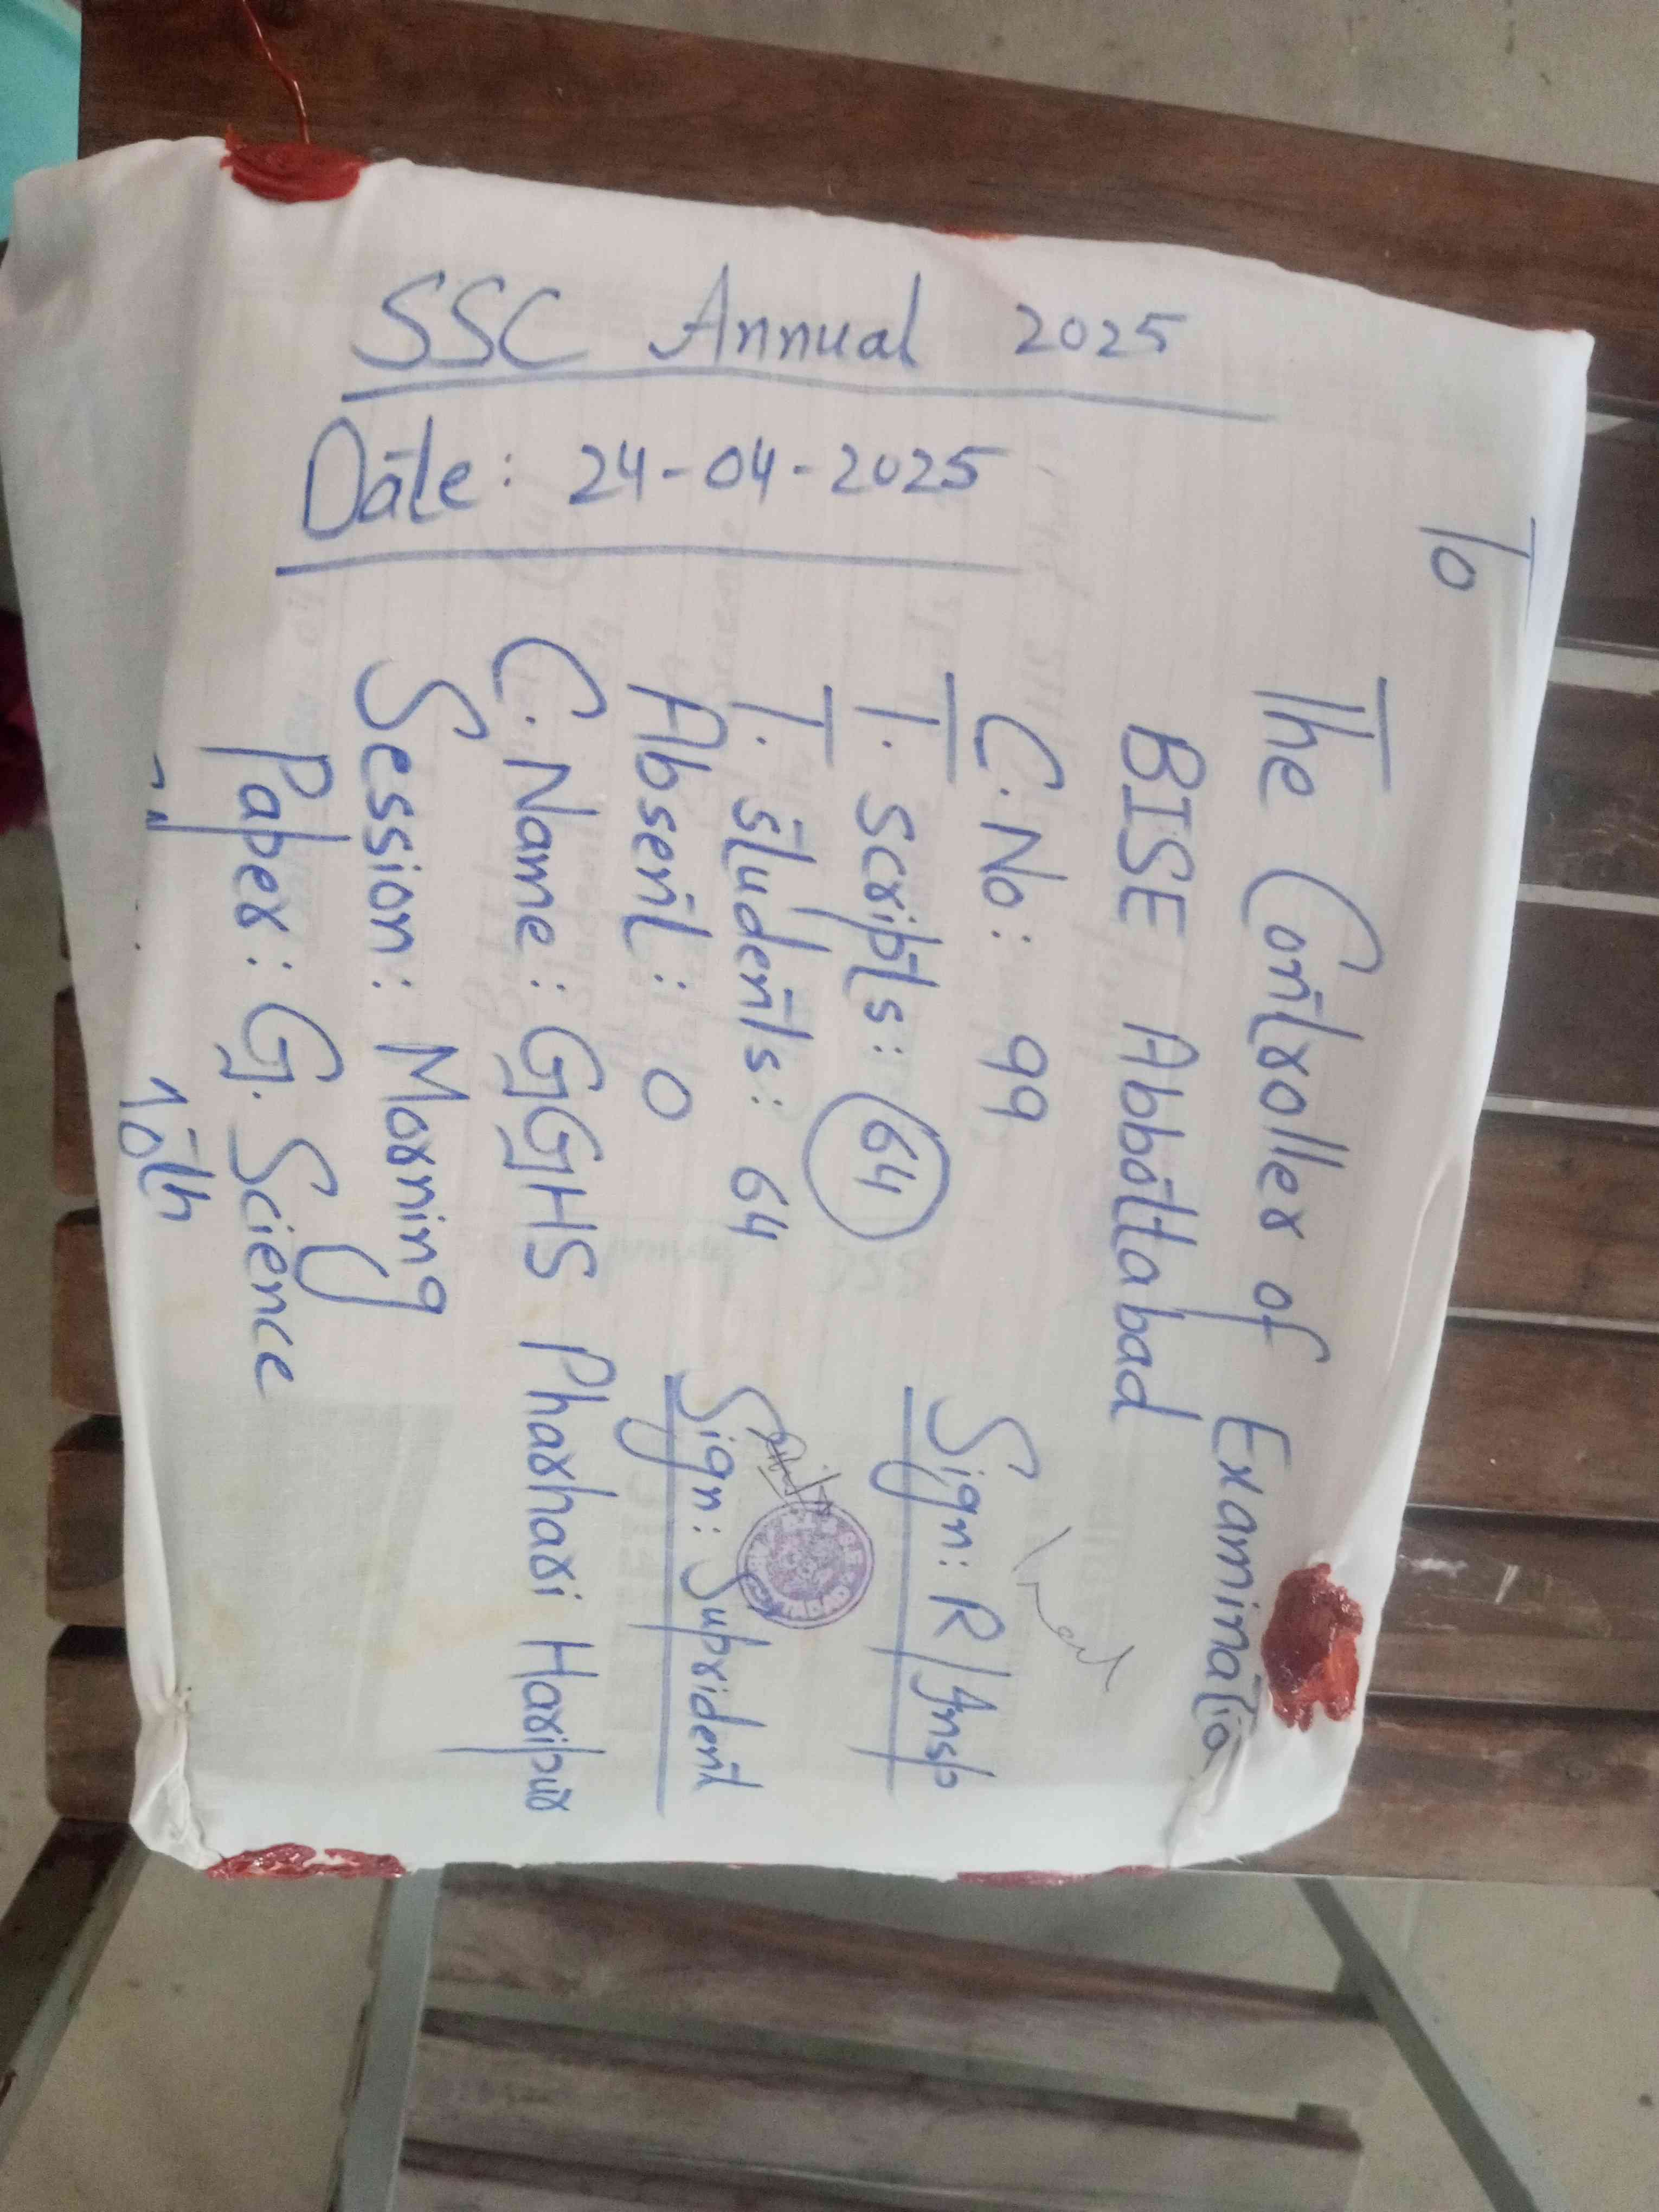 To
The Controller of Examinatio
BISE Abbottabad
C.No: 99
T. Scripts: 64
T. students: 64
Absent: 0
C.Name: GGHS Pharhari Haripur
Session: Morning
Paper: G. Science
10th
Sign: R/Insp
Sign: Suprident
SSC Annual 2025
Date: 24-04-2025